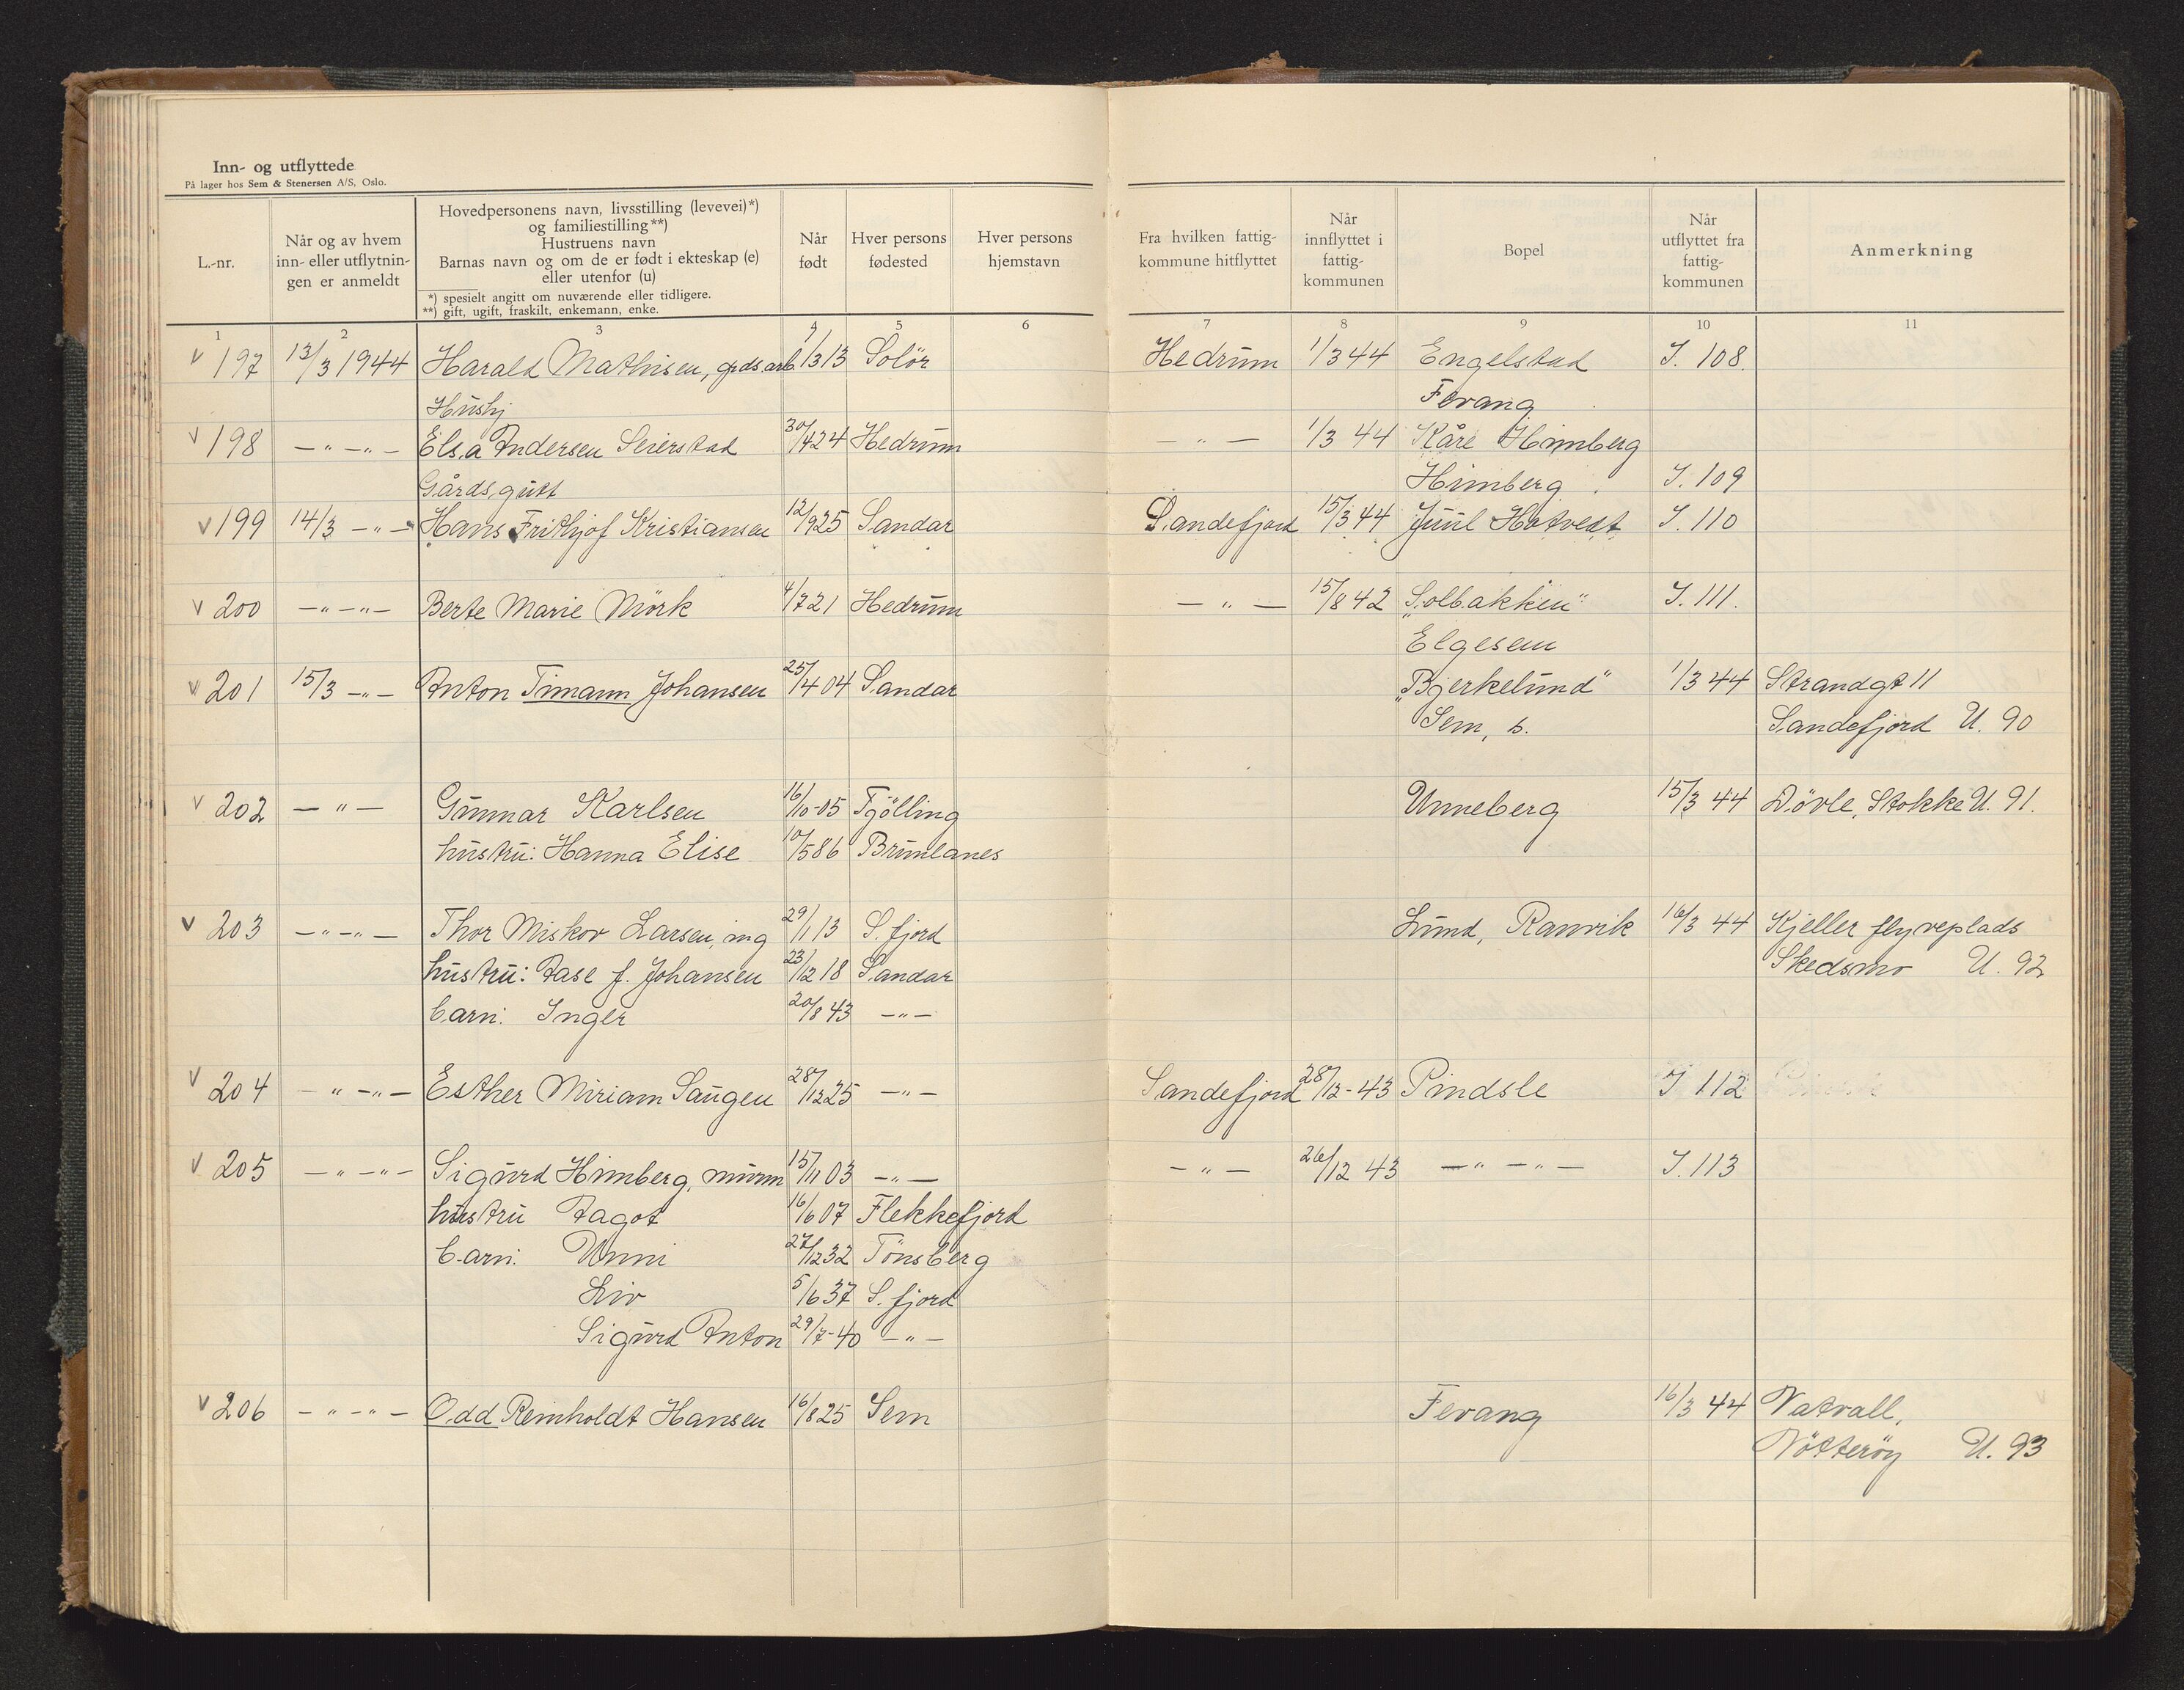 Inn- og utflyttede
På lager hos Sem & Stenersen A/S, Oslo.
L.-nr.
Når og av hvem
inn- eller utflytnin-
gen er anmeldt
Hovedpersonens navn, livsstilling (levevei)*)
og familiestilling**)
Hustruens navn
Barnas navn og om de er født i ekteskap (e)
eller utenfor (u)
*) spesielt angitt om nuværende eller tidligere.
**) gift, ugift, fraskilt, enkemann, enke.
Når
født
Hver persons
fødested
Hver persons
hjemstavn
Fra hvilken fattig-
kommune hitflyttet
Når
innflyttet i
fattig-
kommunen
Bopel
Når
utflyttet fra
fattig-
kommunen
Anmerkning
1 2 3 4 5 6 7 8 9 10 11
v 197 13/3 1944 Harald Mathisen, grds.arb. 1/3 13 Solör Hedrum 1/3 44 Engelstad I. 108.
Hushj Ferang
v 198 — " — " — Elsa Andersen Seierstad 30/4 24 Hedrum — " — 1/3 44 Kåre Himberg
Gårdsgutt Himberg I. 109
v 199 14/3 — " — Hans Frithjof Kristiansen 12/9 25 Sandar Sandefjord 15/3 44 Juul Hotvedt I. 110
v 200 — " — " — Berte Marie Mörk 4/7 21 Hedrum — " — 15/8 42 "Solbakken" I. 111.
Elgesem
v 201 15/3 — " — Anton Timann Johansen 25/4 04 Sandar "Bjerkelund" 1/3 44 Strandgt 11
Sem, s. Sandefjord U. 90
v 202 — " — Gunnar Karlsen 16/10-05 Tjölling Unneberg 15/3 44 Døvle, Stokke U. 91.
hustru: Hanna Elise 10/5 86 Brunlanes
v 203 — " — " — Thor Miskov Larsen, ing 29/1 13 S. fjord Lund, Ranvik 16/3 44 Kjeller flyveplads
hustru: Aase f. Johansen 23/12 18 Sandar Skedsmo U. 92
barn: Inger 20/8 43 — " —
v 204 — " — " — Esther Miriam Saugen 28/12 25 — " — Sandefjord 28/12-43 Pindsle I 112
v 205 — " — " — Sigurd Himberg, murm 15/11 03 — " — — " — 26/12 43 — " — " — I. 113
hustru Aagot 16/6 07 Flekkefjord
barn: Unni 27/12 32 Tönsberg
Liv 5/6 37 S. fjord
Sigurd Anton 29/7-40 — " —
v 206 — " — " — Odd Reinholdt Hansen 16/8 25 Sem Ferang 16/3 44 Vatvall,
Nötteröy U. 93